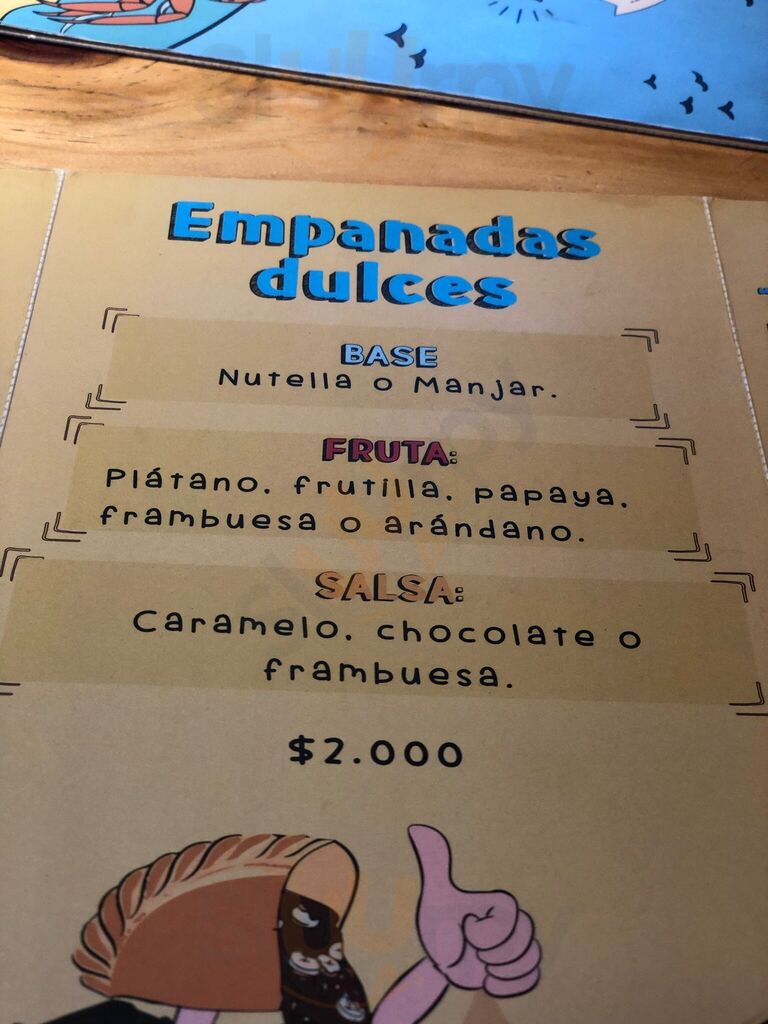 Empanadas
dulces
BASE
Nutella o Manjar.
FRUTA:
Plátano, frutilla, papaya,
frambuesa o arándano.
SALSA:
Caramelo, chocolate o
frambuesa.
$2.000